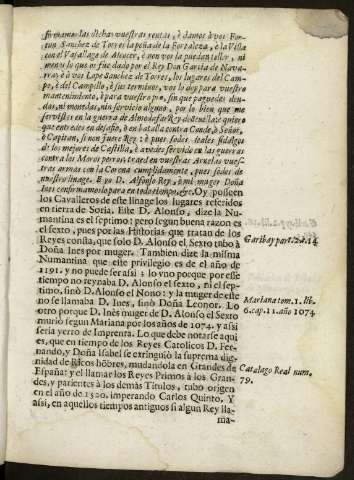 firmamos las dichas vuestras rentas, è damos à vos For-
tun Sanchez de Torres la peña de la Fortaleza, è la Vista
con el Vasallage de Atoucer, è non vos la puedan toller, ni
menu lo que os fue dado por el Rey Don Garcia de Navar-
ra; y è à vos Lape Sanchez de Torres, los lugares del Cam-
po, è del Campillo, è sus terminos, vos lo doy para vuestro
mantenimiento, è para vuestro pro, sin que paguedes deu-
das, ni monedas, nin servicio alguno, por lo bien que me
servistes en la guerra de Almodafar Rey de Sevilla: è quiero
que entredes en desafio, è en batalla contra Conde, è Señor,
è Capitan, si non fuere Rey: è pues sodes leales fidalgos
de los mejores de Castilla, è avedes servicio en las guerras
contra los Moros perros; traed en vuestras Armelas vues-
tras armas con la Corona cumplidamente, pues sodes de
nuestro linage. E yo D. Alfonso Rey, è mi muger Doña
Ines confirmamoslo para en todo tiempo, &c. Oy posseen
los Cavalleros de este linage los lugares referidos
en tierra de Soria. Este D. Alonso, dize la Nu-
mantina es el septimo: pero segun buena razon es
el sexto, pues por las Historias que tratan de los
Reyes consta, que solo D. Alonso el Sexto tubo à
Doña Ines por muger. Tambien dize la misma
Numantina que este privilegio es de el año de
1191. y no puede ser assi: lo vno porque por este
tiempo no reynaba D. Alonso el sexto, ni el sep-
timo, sinò D. Alonso el Nono: y la muger de este
no se llamaba D. Ines, sinò Doña Leonor. Lo
otro porque D. Inès muger de D. Alonso el Sexto
murió segun Mariana por los años de 1074. y assi
seria yerro de Imprenta. Lo que debe notarse aqui
es, que en tiempo de los Reyes Catolicos D. Fer-
nando, y Doña Isabel se extinguiò la suprema dig-
nidad de Ricos hõbres, mudandola en Grandes de
España: y el llamar los Reyes Primos à los Gran-
des, y parientes à los demàs Titulos, tubo origen
en el año de 1520. imperando Carlos Quinto. Y
assi, en aquellos tiempos antiguos si algun Rey lla-
ma-
Garibay part. 2. c. 14
Mariana tom. 1. lib.
6. cap. 11. año 1074
Catalago Real num.
79.